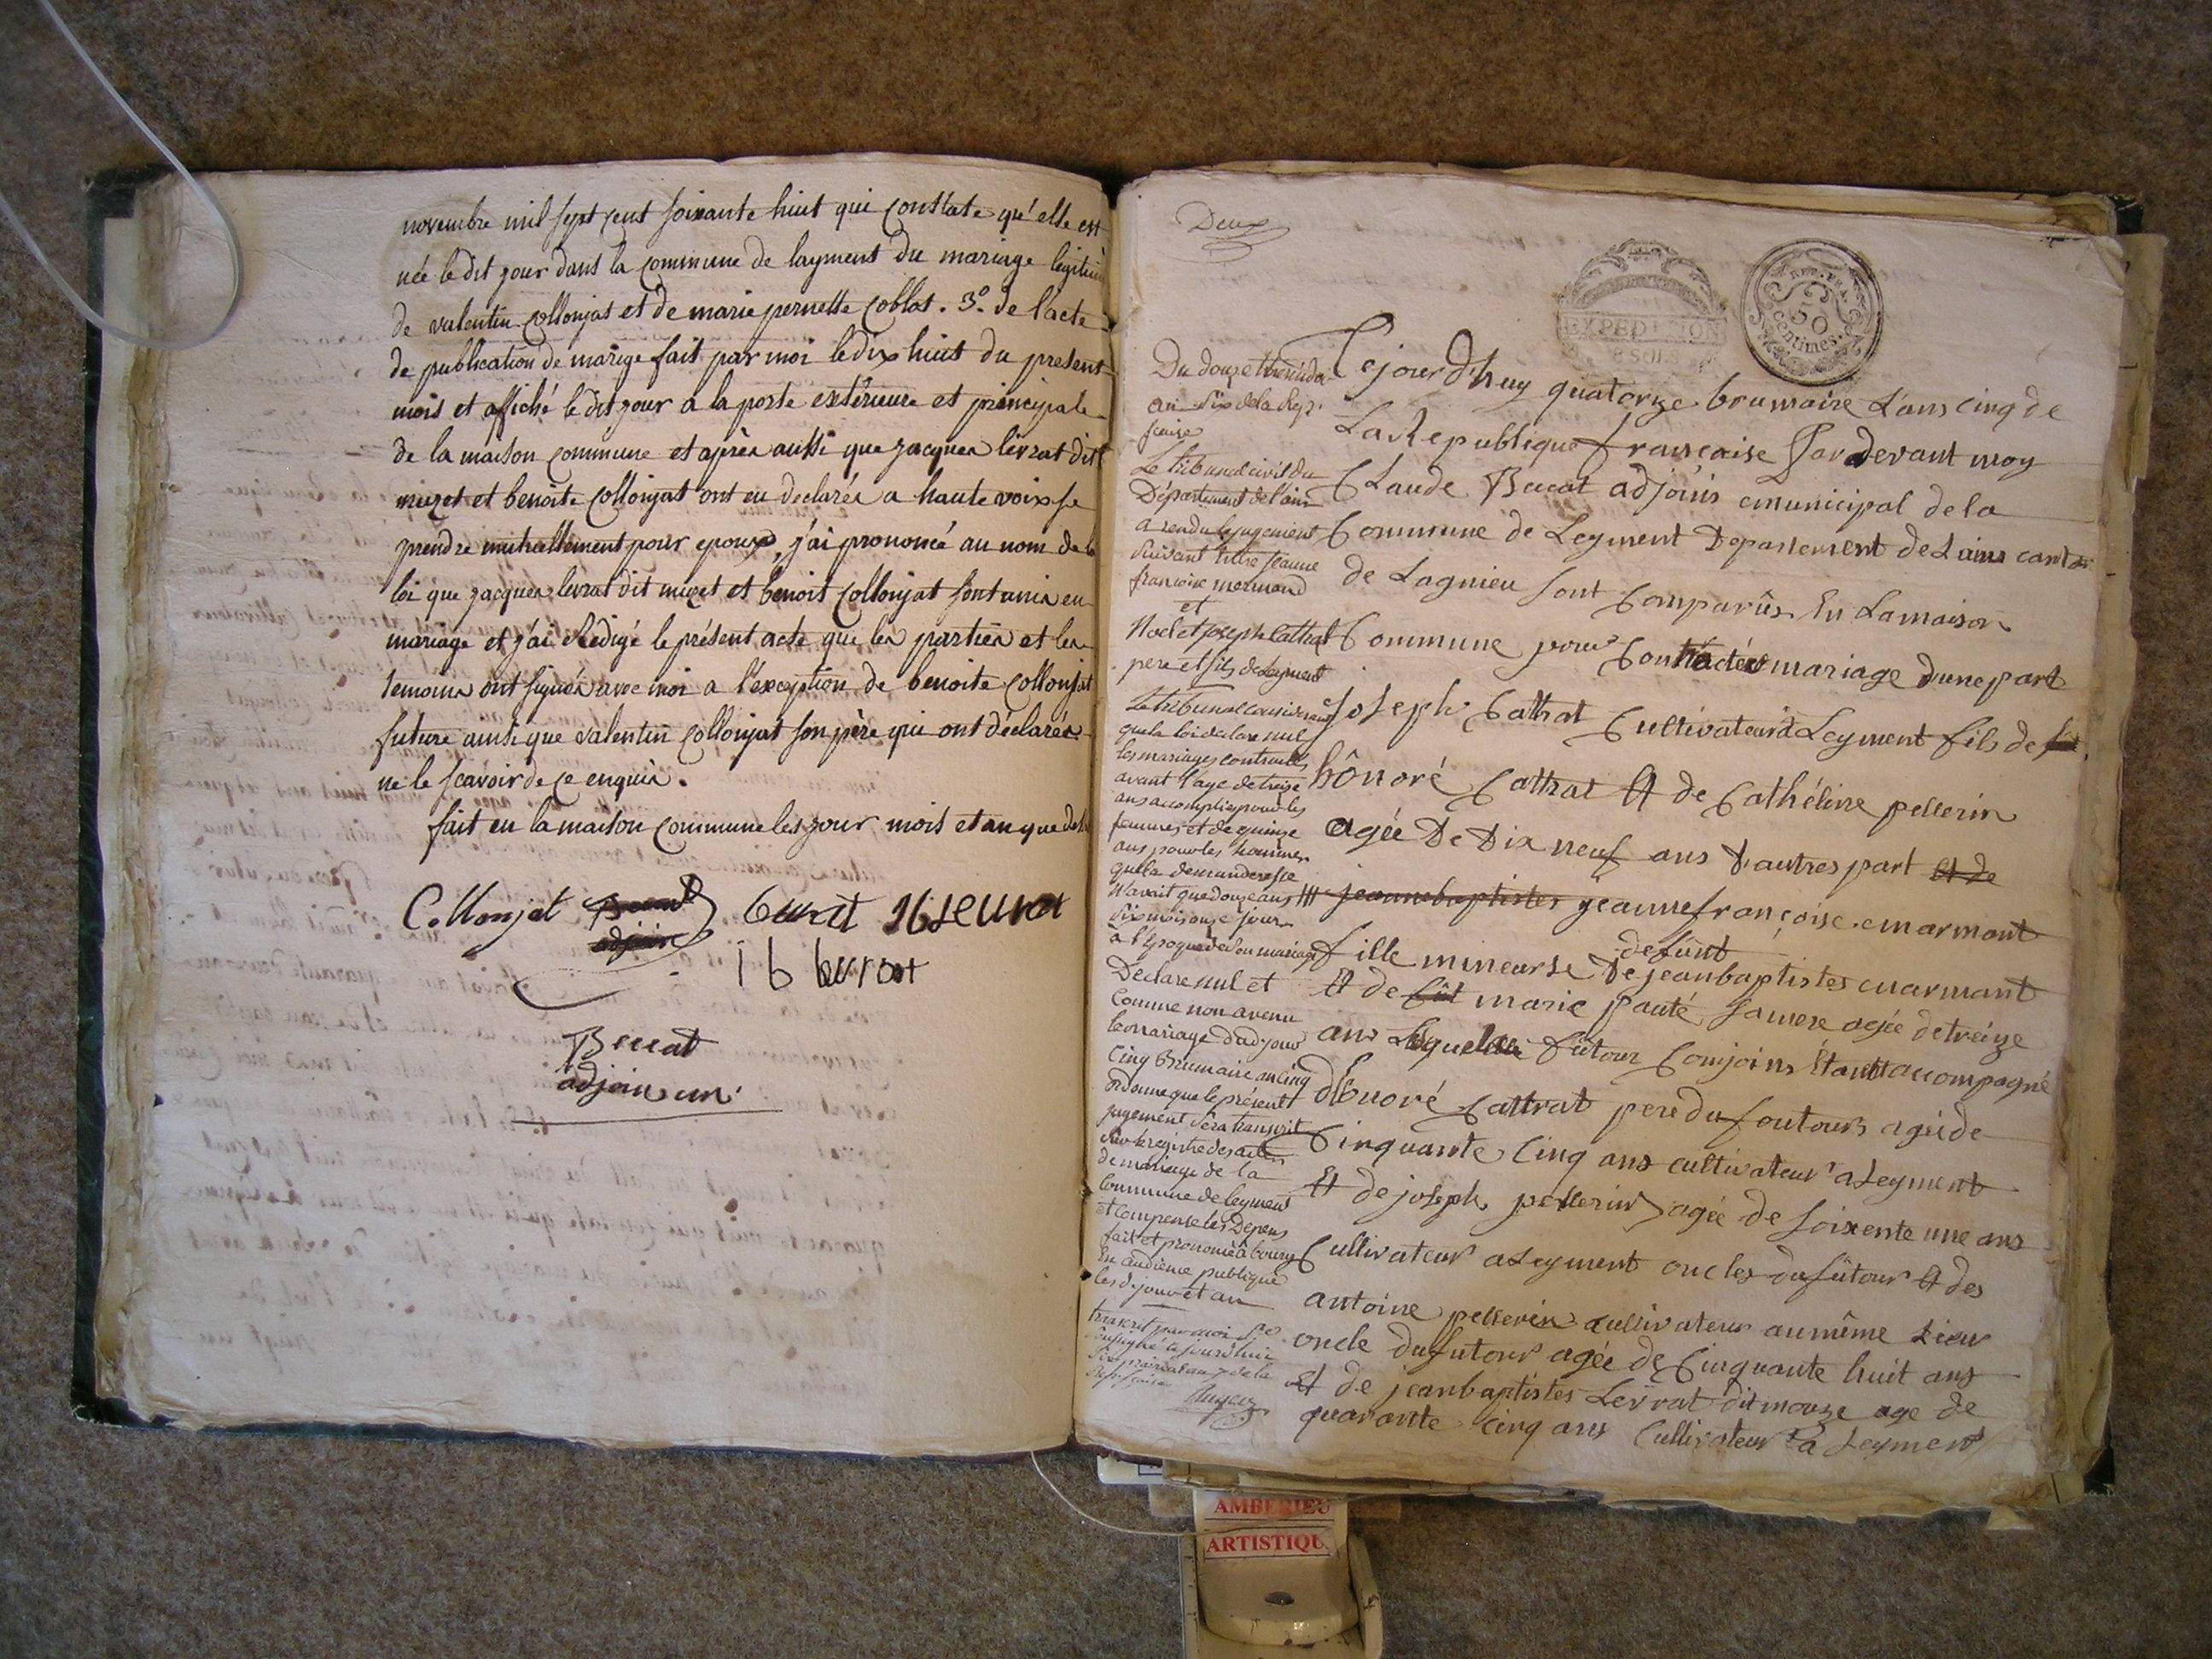 novembre mil sept cent soixante huit qui constate qu'elle est
née le dit jour dans la commune de layment du mariage légitime
de valentin collonjat et de marie pernette coblat. 3° de l'acte
de publication de marige fait par moi le dix huit du present
mois et affiché le dit jour a la porte extérieure et principale
de la maison commune et après aussi que jacques levrat dit
muzet et benoite collonjat ont eu declarés a haute voix se
prendre mutuellement pour epoux, j'ai prononcé au nom de la
loi que jacques levrat dit muzet et benoit collonjat sont unis en
mariage et j'ai rédigé le présent acte que les parties et les
temoins ont signés avec moi a l'exception de benoite collonjat
future ainsi que valentin collonjat son père qui ont déclarés
ne le scavoir de ce enquis.
fait en la maison commune les jour mois et an que
Collonjat Beccat levrat
adjoin
Beccat
adjoin
Deux
EXPEDITION
8 SOLS
REP. FRA.
50
centimes
Du douze thermidor
an six de la Rep.
Le tribunal civil du
Département de l'ain
a rendu le jugement
suivant Entre jeanne
francoise mermand
et
Noel et joseph Cattrat
pere et fils de Leyment
Le tribunal considerant
que la loi declare nul
les mariages contractés
avant l'age de treize
ans accomplis pour les
femmes et de quinze
ans pour les hommes
que la demanderesse
n'avait que douze ans
six mois onze jours
a l'Epoque de son mariage
Declare nul et
comme non avenu
le mariage dud. jour
cinq Brumaire an cinq
ordonne que le présent
jugement sera transcrit
sur le registre des actes
de mariage de la
Commune de leyment
et compense les Depens
fait et prononcé à bourg
En audience publique
les d. jour et an
transcrit par moi
soussigné ce jourd'hui
six prairial an 7 de la
Cejourd'huy quatorze brumaire L'ans cinq de
La Republique française Par devant moy
Claude Beccat adjoins municipal de la
Commune de Leyment Departement de Lains canton
de Lagnieu sont Comparûs En Lamaison
Commune pour Contractér mariage dune part
joseph Cattrat Cultivateur a Leyment fils de
hônoré Cattrat Et de Cathéline pellerin
agée De Dix neuf ans D'autres part Et de
jeanne baptistes jeanne françoise marmant
defûnt
fille mineurse De jean baptistes marmant
Et de marie pauté sa mere agée de treize
ans Lequelle fûtour Conjoins Etant accompagné
d'honoré Cattrat pere du foutours agéé de
Cinquante Cinq ans cultivateur a Leyment
Et de joseph pellerin agée de soixente une ans
Cultivateur a Leyment oncles du fûtour Et des
antoine pellerin cultivateur au même Lieu
oncle du futour agée de Cinquante huit ans
Et de jean baptistes Levrat dit mouze age de
quarante cinq ans Cultivateur a Leyment
AMBERIEU
ARTISTIQU